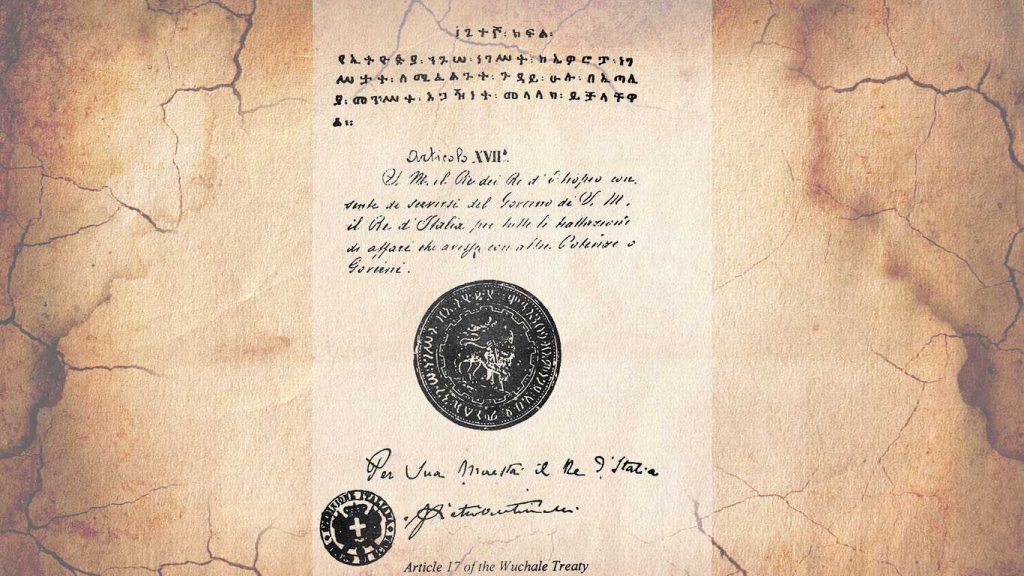 ፲፯ተኛ፡ ክፍል፡
የኢትዮጵያ፡ ንጉሠ፡ ነገሥት፡ ከኤዎሮፓ፡ ነገ
ሥታት፡ ለሚፈልጉት፡ ጉዳይ፡ ሁሉ፡ በኢጣሊ
ያ፡ መንግሥት፡ አጋዥነት፡ መላላክ፡ ይቻላቸዋ
ል፡፡
Articolo XVIIº.
S. M. il Re dei Re d'Etiopia con
sente di servirsi del Governo di S. M.
il Re d'Italia per tutte le trattazioni
di affari che avesse con altre Potenze o
Governi.
Per Sua Maestà il Re d'Italia
Article 17 of the Wuchale Treaty